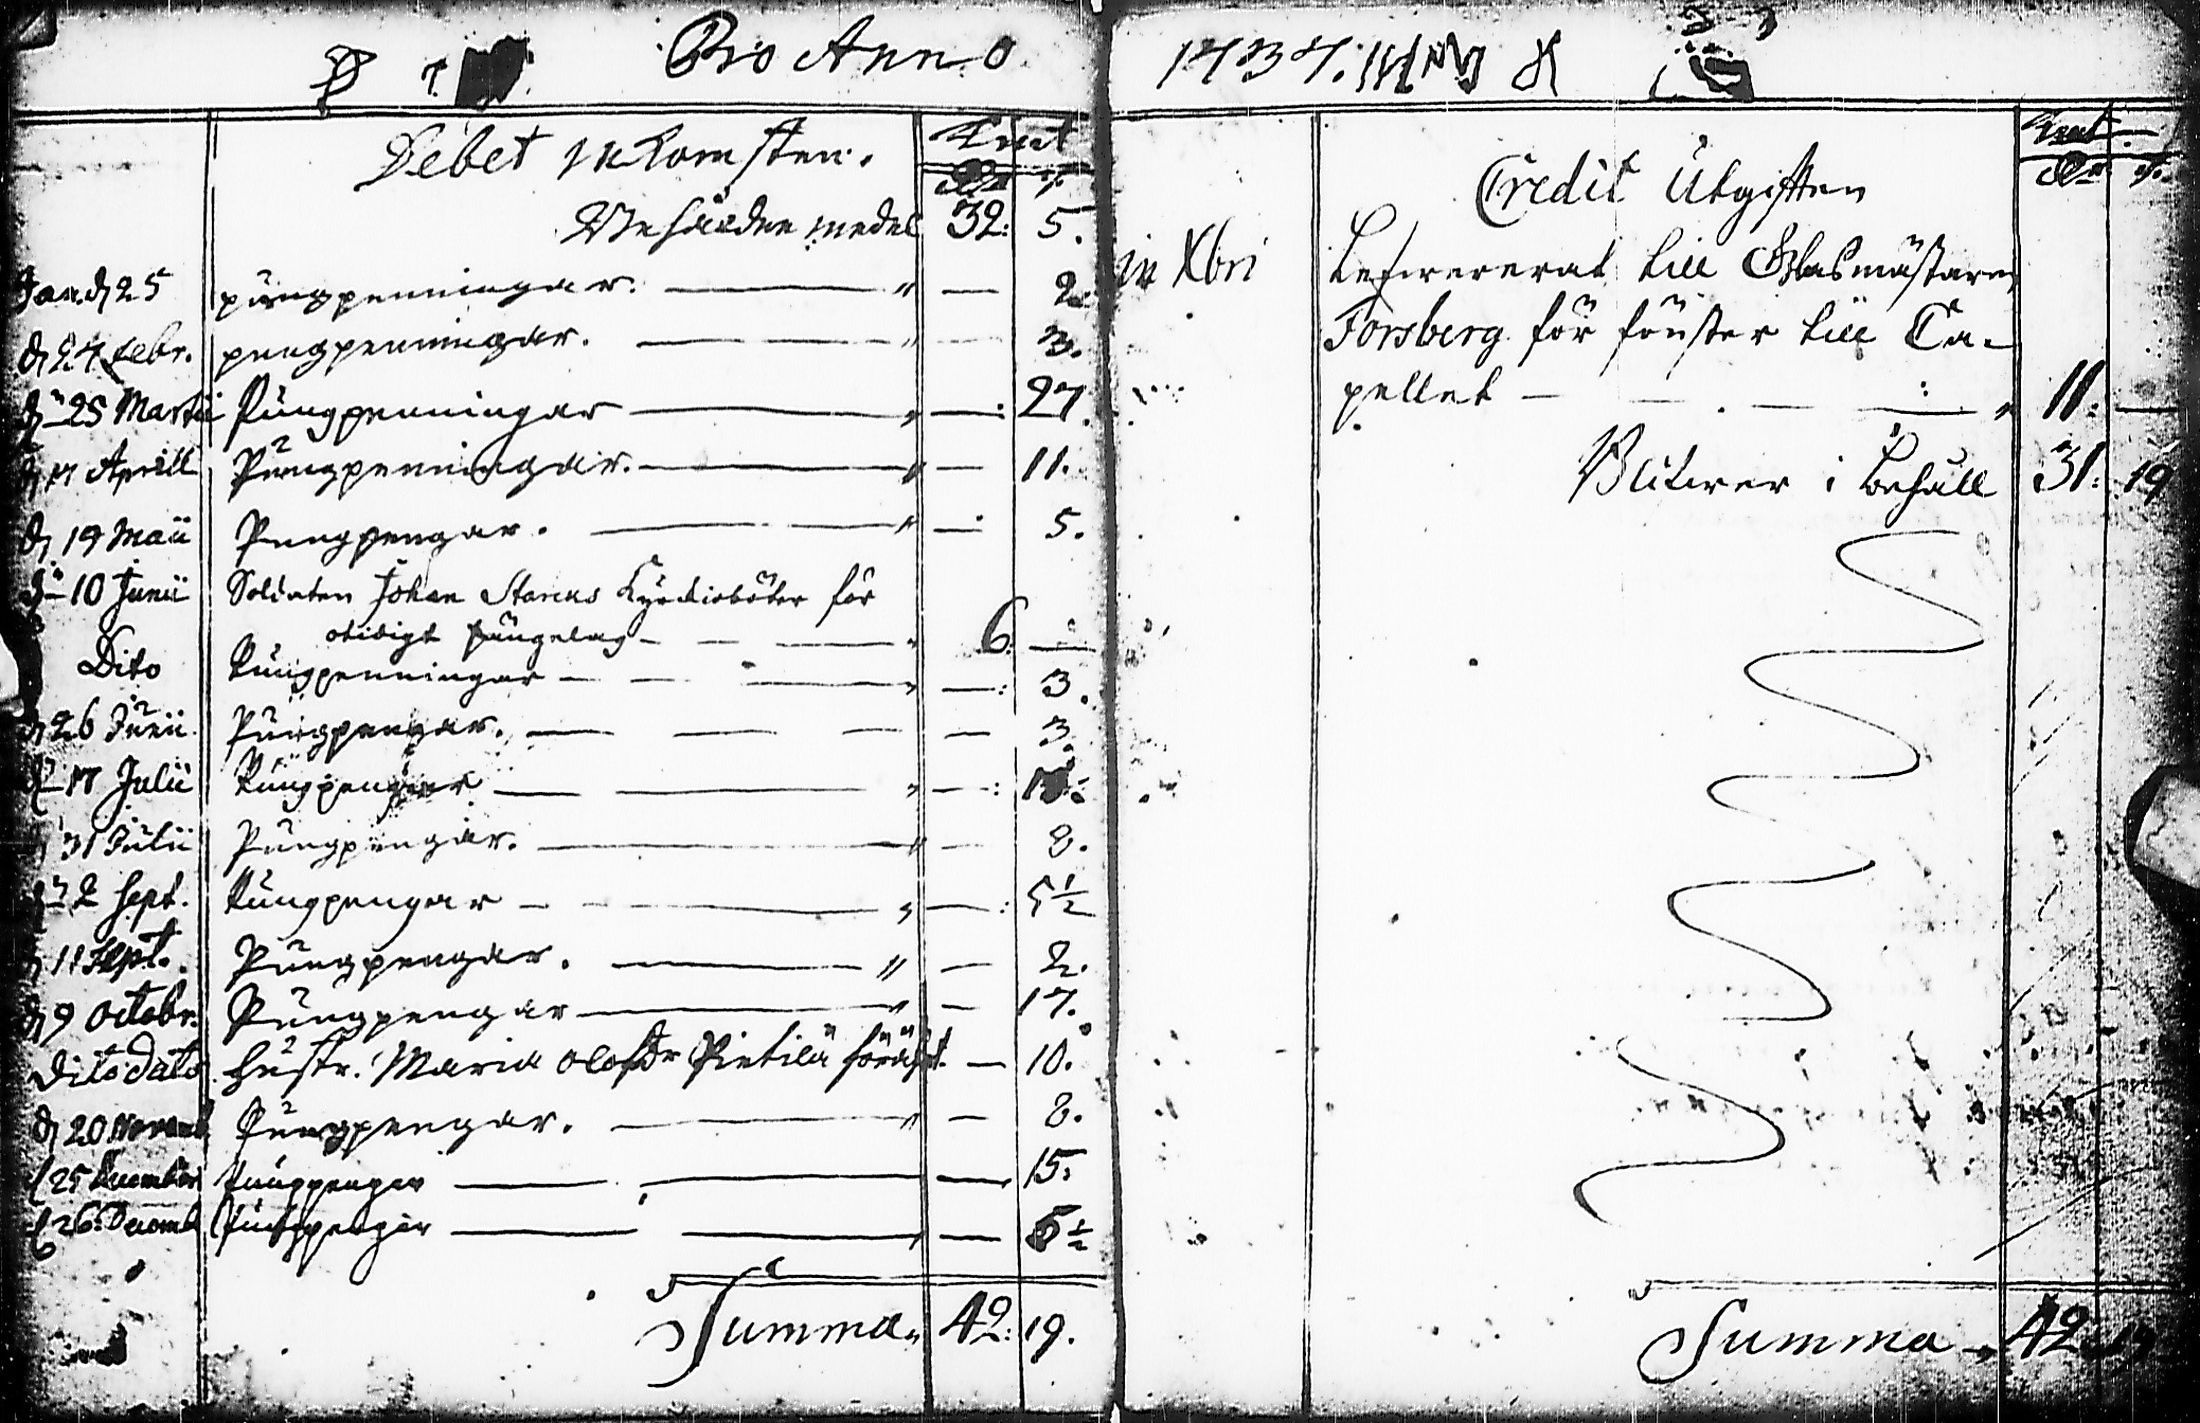 Pro Anno
Debet Inkomsten. Kmt
Behåldne medel 32: 5.
Jan. d 25 pungpenningar. " — 2
d 27 Febr. pungpenningar. " — 3.
dn 25 Martii Pungpenningar " —: 27.
d 17 Aprill Pungpenningar. " — 11.
d 19 Maii Pungpengar. " — 5.
dn 10 Junii Soldaten Johan Starcks Kyrckioböter för
otidigt sängelag " 6: —
Dito Pungpenningar " —: 3.
d 26 Junii Pungpengar. — 3.
dn 17 Julii Pungpengar " —:
d 31 Julii Pungpengar. " — 8.
dn 2 Sept. Pungpengar " —: 5½
d 11 Sept. Pungpengar. " — 2.
d 9 Octobr. Pungpengar " — 17.
Dito dato Hustr. Maria Olofsdr Pietilä förährt. — 10.
d 20 Novemb Pungpengar. " — 8.
d 25 December Pungpengar — 15.
d 26 Decemb Pungpengar " — 5½
Summa " 42: 19.
1737.
Kmt
Credit Utgiften
in Xbri Lefwererat till Glasmästaren
Forsberg för fönster till Ca-
pellet " 11: —
Blifwer i behåll 31: 19
Summa " 42 19